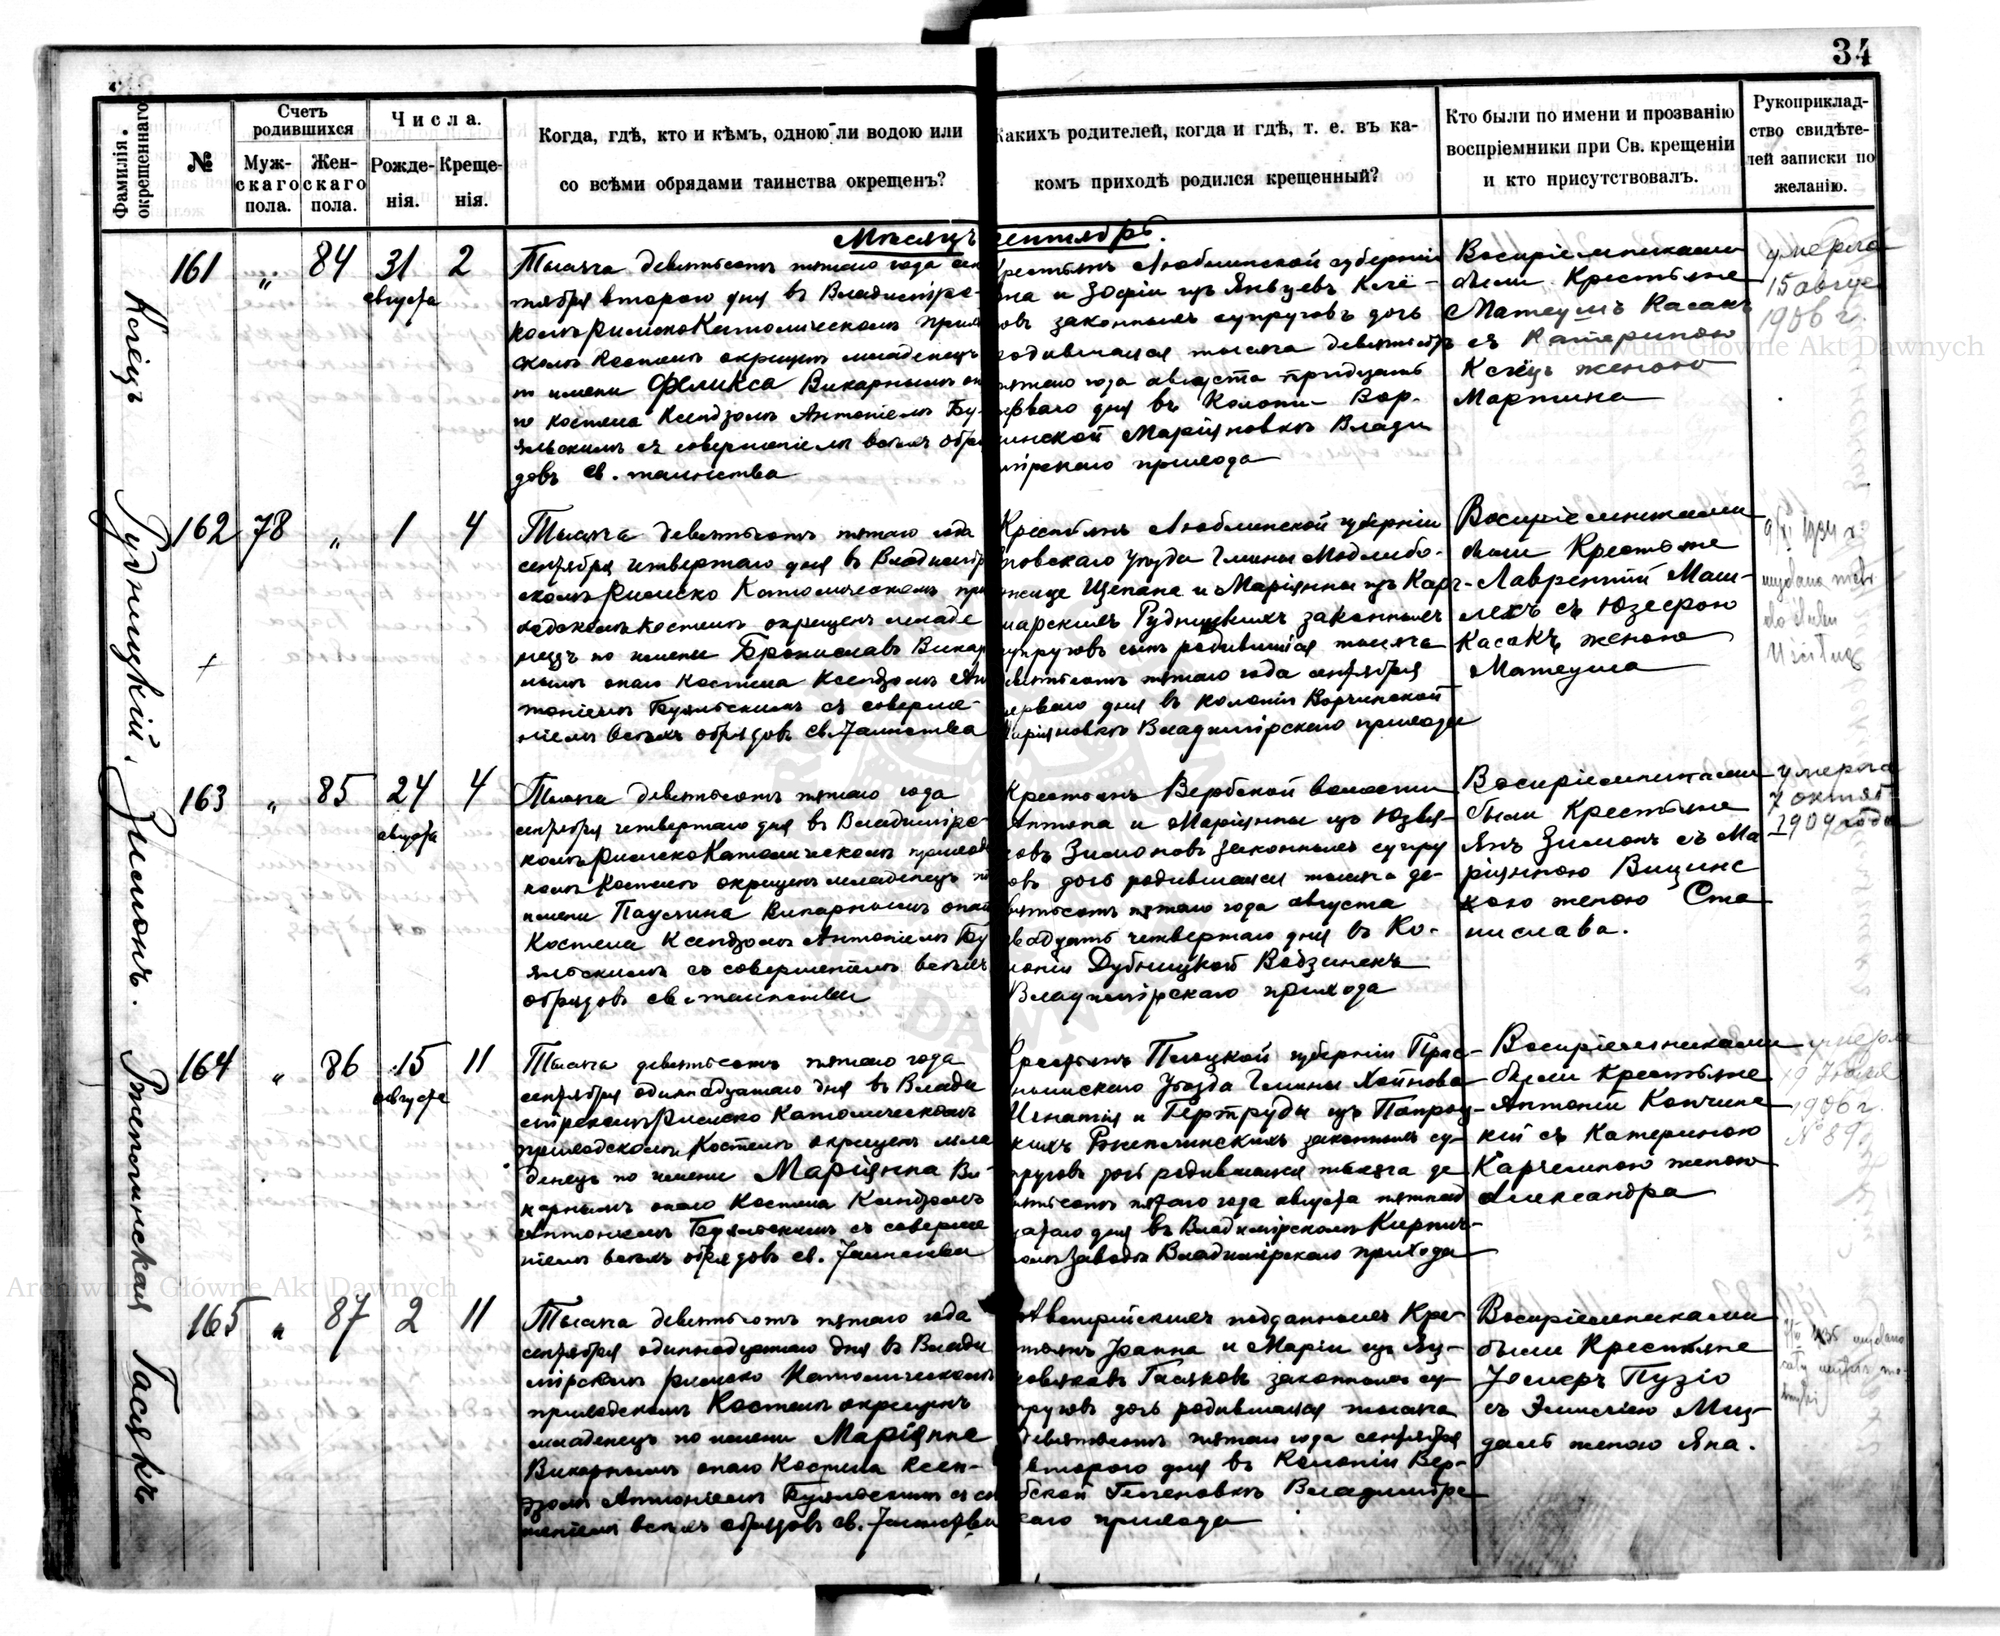 34
Фамилія окрещеннаго.
№
Счетъ родившихся
Муж-скаго пола.
Жен-скаго пола.
Числа.
Рожде-нія.
Креще-нія.
Когда, гдѣ, кто и кѣмъ, одною ли водою или
со всѣми обрядами таинства окрещенъ?
Какихъ родителей, когда и гдѣ, т. е. въ ка-
комъ приходѣ родился крещенный?
Кто были по имени и прозванію
воспріемники при Св. крещеніи
и кто присутствовалъ.
Рукоприклад-
ство свидѣте-
лей записки по
желанію.
Мѣсяцъ сентябрь.
Ксіецъ
161 " 84 31 августа 2
Тысяча девятьсотъ пятаго года сен
тября второго дня въ Владимірс-
комъ Римско Католическомъ прих
скомъ Костелѣ окрещенъ младенецъ
по имени Феликса Викарнымъ он
го костела Ксендзомъ Антоніемъ Бу-
яльскимъ съ совершеніемъ всѣхъ обря
довъ св. таинства
крестьянъ Люблинской губерніи
на и Зофіи изъ Янь
овъ законныхъ супруговъ дочь
родившаяся тысяча девятьсотъ
пятаго года августа тридцать
перваго дня въ Колоніи Вор-
чинской Маріяновкѣ Влади
мірскаго прихода
Воспріемниками
были Крестьяне
Матеушъ Касакъ
съ Катериною
Ксіецъ женою
Мартина
умерла
15 авгус
1906 г.
Рудницкій.
162 78 " 1 4
Тысяча девятьсотъ пятаго года
сентября четвертаго дня въ Владимір
скомъ Римско Католическомъ при
ходскомъ Костелѣ окрещенъ младе
нецъ по имени Брониславъ Викар
нымъ онаго Костела Ксендзомъ Ан
тоніемъ Буяльскимъ съ соверше-
ніемъ всѣхъ обрядовъ св. Таинства
Крестьянъ Люблинской губерніи
новскаго уѣзда Гмины Модлибо-
жице Щепана и Маріянны изъ Кар-
марскихъ Рудницкихъ законныхъ
супруговъ сынъ родившійся тысяча
девятьсотъ пятаго года сентября
перваго дня въ колоніи Ворчинской
Маріяновкѣ Владимірскаго прихода
Воспріемниками
были Крестьяне
Лаврентій Маш-
лехъ съ Юзефою
Касакъ женою
Матеуша
Зимонъ.
163 " 85 24 августа 4
Тысяча девятьсотъ пятаго года
сентября четвертаго дня въ Владимірс-
комъ Римско Католическомъ приход
комъ Костелѣ окрещенъ младенецъ по
имени Паулина Викарнымъ онаго
Костела Ксендзомъ Антоніемъ Бу
яльскимъ съ совершеніемъ всѣхъ
обрядовъ св. таинства
Крестьянъ Вербской волости
Антона и Маріянны изъ Юзвя-
ковъ Зимоновъ законныхъ супру
овъ дочь родившаяся тысяча де-
вятьсотъ пятаго года августа
двадцать четвертаго дня въ Ко-
лоніи Дубницкой Водзинекъ
Владимірскаго прихода
Воспріемниками
были Крестьяне
Янъ Зимонъ съ Ма
ріянною Вицинс
кою женою Ста
нислава.
умерла
7 октяб
1909 года
Рженпинская
164 " 86 15 августа 11
Тысяча девятьсотъ пятаго года
сентября одиннадцатаго дня въ Влади
мірскомъ Римско Католическомъ
приходскомъ Костелѣ окрещенъ мла
денецъ по имени Маріянна Ви-
карнымъ онаго Костела Ксендзомъ
Антоніемъ Буяльскимъ съ соверше
ніемъ всѣхъ обрядовъ св. Таинства
Крестьянъ Плоцкой губерніи Прас-
нышскаго Уѣзда Гмины Хойново
Игнатія и Гертруды изъ Папроц-
кихъ Рженпинскихъ законныхъ су-
пруговъ дочь родившаяся тысяча де
вятьсотъ пятаго года августа пятнад
цатаго дня въ Владимірскомъ Кирпич-
номъ Заводѣ Владимірскаго прихода
Воспріемниками
были Крестьяне
Антоній Копчинс
кій съ Катериною
женою
Александра
умерла
19 Января
1906 г.
№ 89
Гасякъ
165 " 87 2 11
Тысяча девятьсотъ пятаго года
сентября одиннадцатаго дня въ Влади
мірскомъ римско Католическомъ
приходскомъ Костелѣ окрещенъ
младенецъ по имени Маріянна
Викарнымъ онаго Костела Ксен-
дзомъ Антоніемъ Буяльскимъ съ со
шеніемъ всѣхъ обрядовъ св. Таинства
Австрійскихъ подданныхъ Кре-
стьянъ Іоанна и Маріи изъ
Гасяковъ законныхъ су-
пруговъ дочь родившаяся тысяча
девятьсотъ пятаго года сентября
второго дня въ Колоніи Вер-
бской Владимірс
каго прихода
Воспріемниками
были Крестьяне
Іосифъ Пузіо
съ Эмиліею Миг-
далъ женою Яна.
Archiwum Główne Akt Dawnych
Archiwum Główne Akt Dawnych